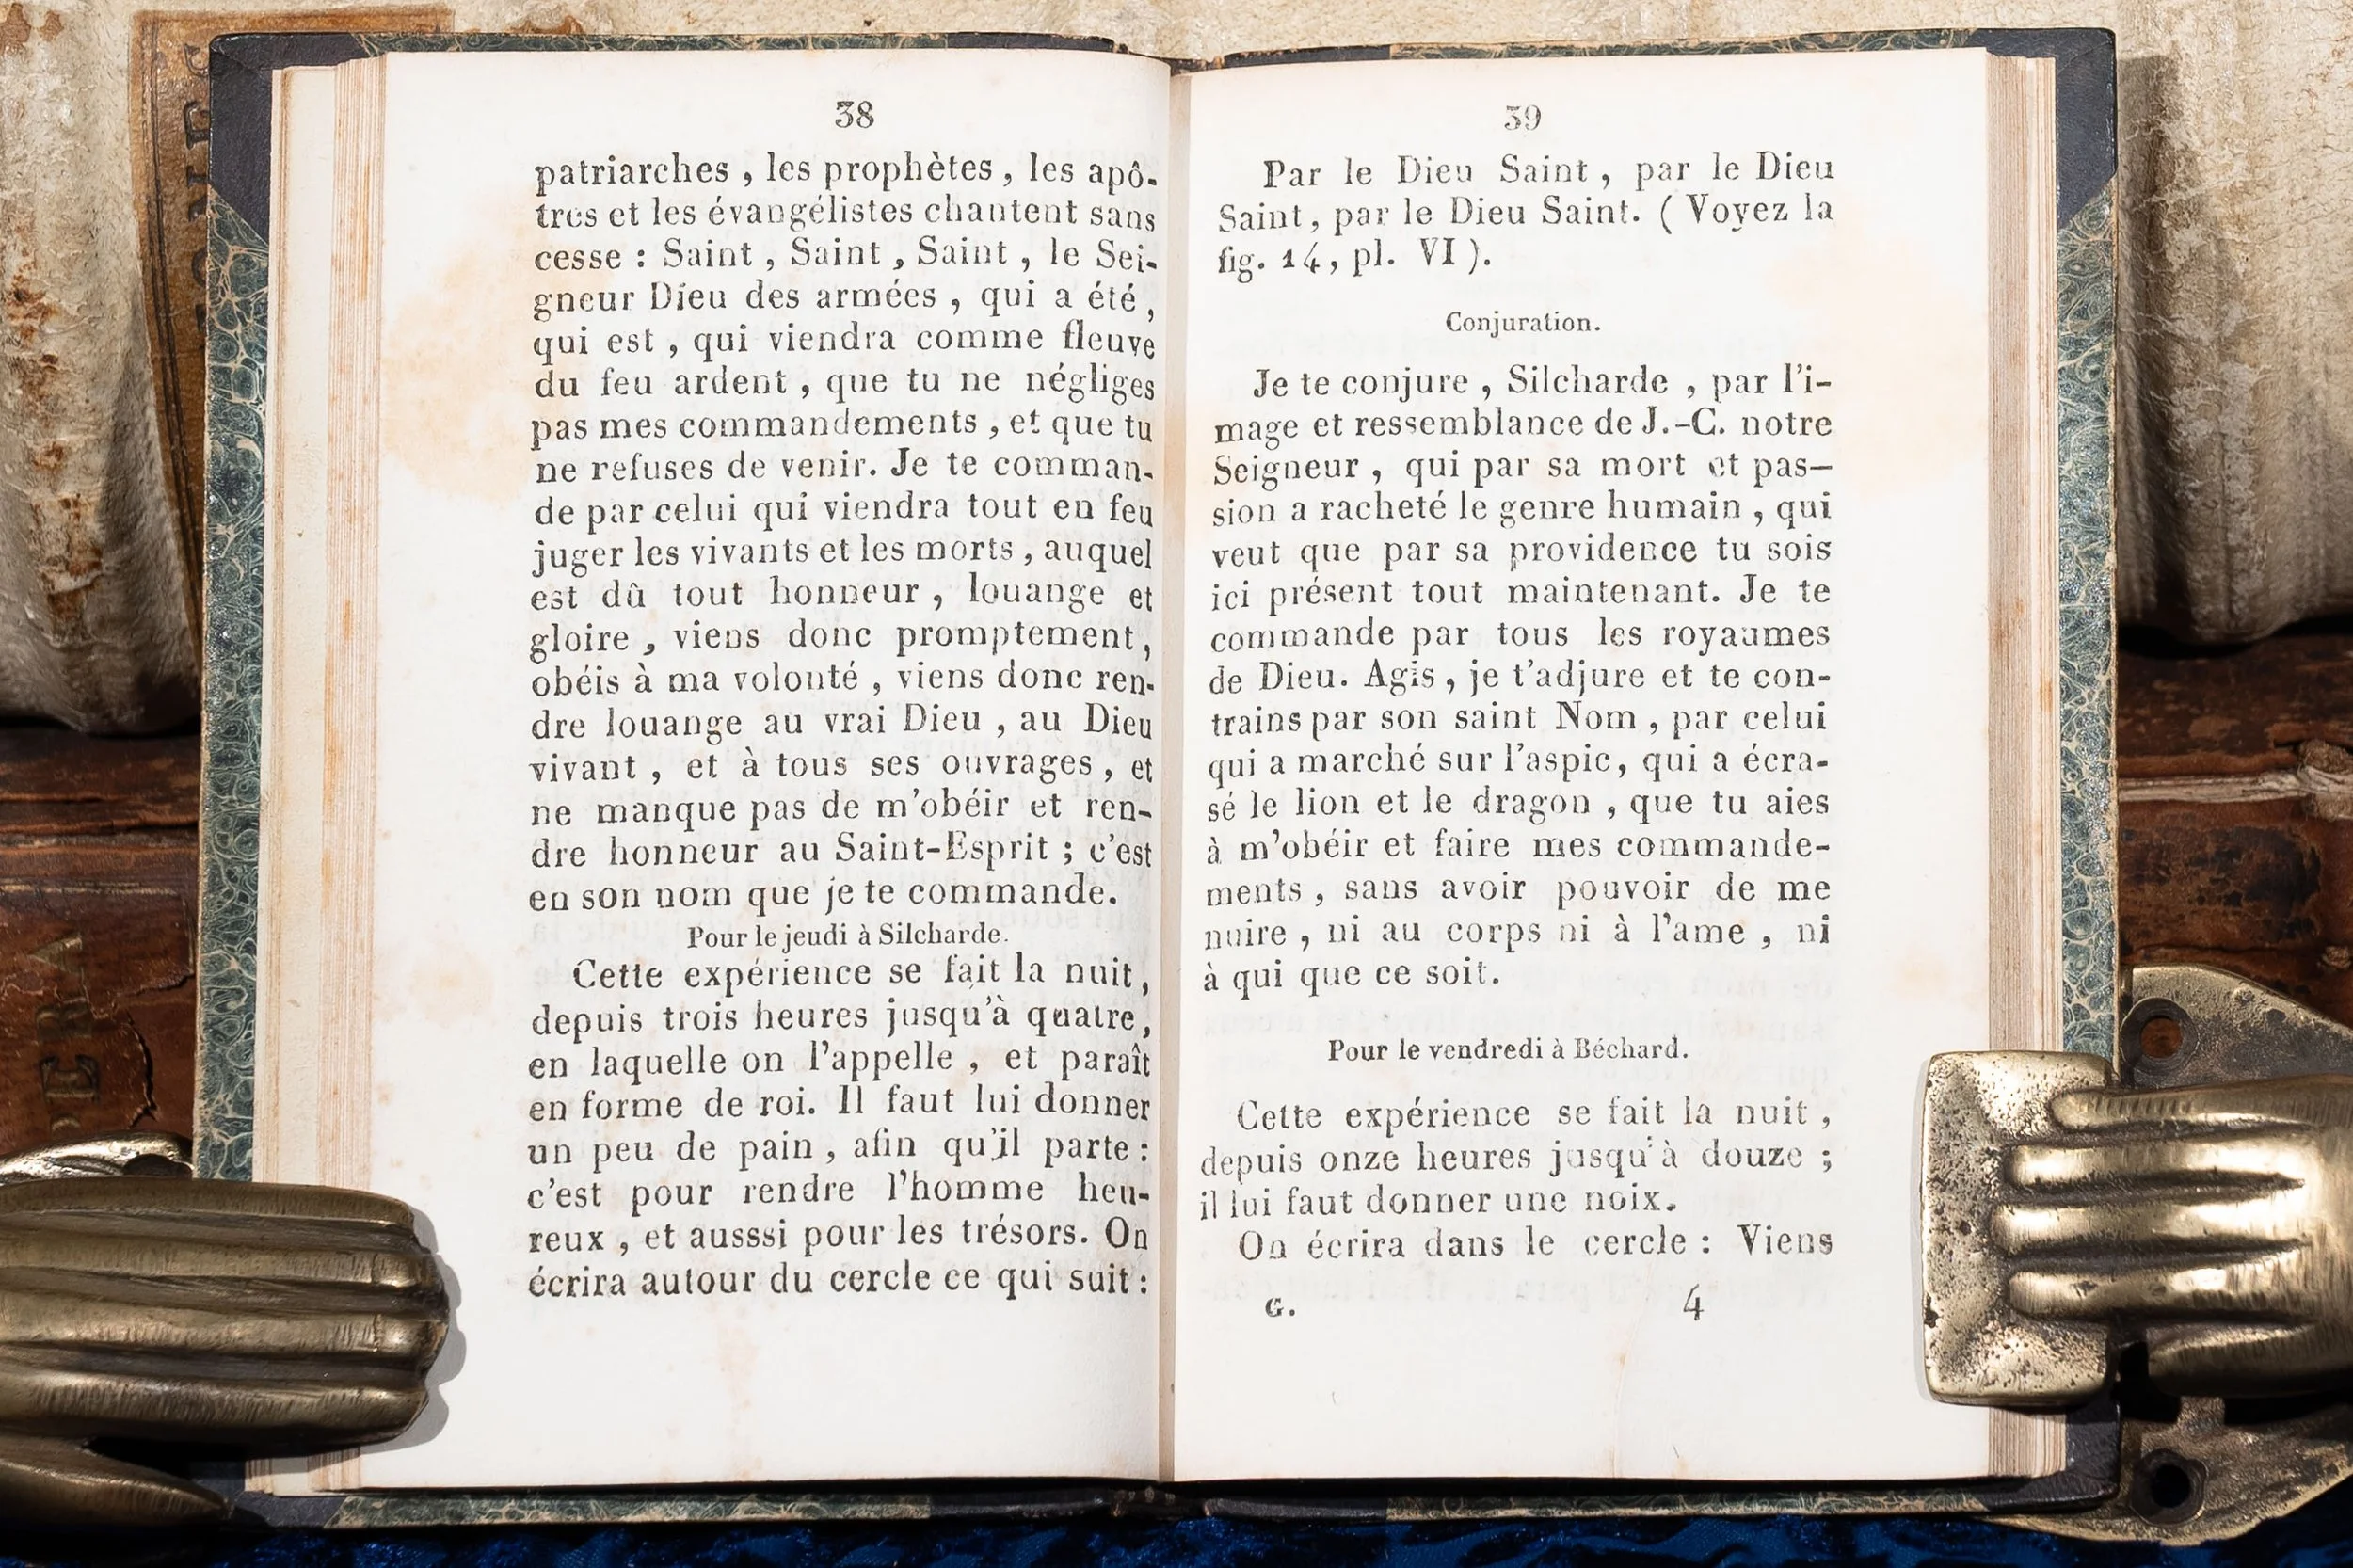 38
patriarches , les prophètes , les apô-
tres et les évangélistes chantent sans
cesse : Saint , Saint , Saint , le Sei-
gneur Dieu des armées , qui a été ,
qui est , qui viendra comme fleuve
du feu ardent , que tu ne négliges
pas mes commandements , et que tu
ne refuses de venir. Je te comman-
de par celui qui viendra tout en feu
juger les vivants et les morts , auquel
est dû tout honneur , louange et
gloire , viens donc promptement ,
obéis à ma volonté , viens donc ren-
dre louange au vrai Dieu , au Dieu
vivant , et à tous ses ouvrages , et
ne manque pas de m'obéir et ren-
dre honneur au Saint-Esprit ; c'est
en son nom que je te commande.
Pour le jeudi à Silcharde.
Cette expérience se fait la nuit ,
depuis trois heures jusqu'à quatre ,
en laquelle on l'appelle , et paraît
en forme de roi. Il faut lui donner
un peu de pain , afin qu'il parte :
c'est pour rendre l'homme heu-
reux , et ausssi pour les trésors. On
écrira autour du cercle ce qui suit :
39
Par le Dieu Saint , par le Dieu
Saint , par le Dieu Saint. ( Voyez la
fig. 14 , pl. VI ).
Conjuration.
Je te conjure , Silcharde , par l'i-
mage et ressemblance de J.-C. notre
Seigneur , qui par sa mort et pas-
sion a racheté le genre humain , qui
veut que par sa providence tu sois
ici présent tout maintenant. Je te
commande par tous les royaumes
de Dieu. Agis , je t'adjure et te con-
trains par son saint Nom , par celui
qui a marché sur l'aspic, qui a écra-
sé le lion et le dragon , que tu aies
à m'obéir et faire mes commande-
ments , sans avoir pouvoir de me
nuire , ni au corps ni à l'ame , ni
à qui que ce soit.
Pour le vendredi à Béchard.
Cette expérience se fait la nuit ,
depuis onze heures jusqu'à douze ;
il lui faut donner une noix.
On écrira dans le cercle : Viens
G. 4